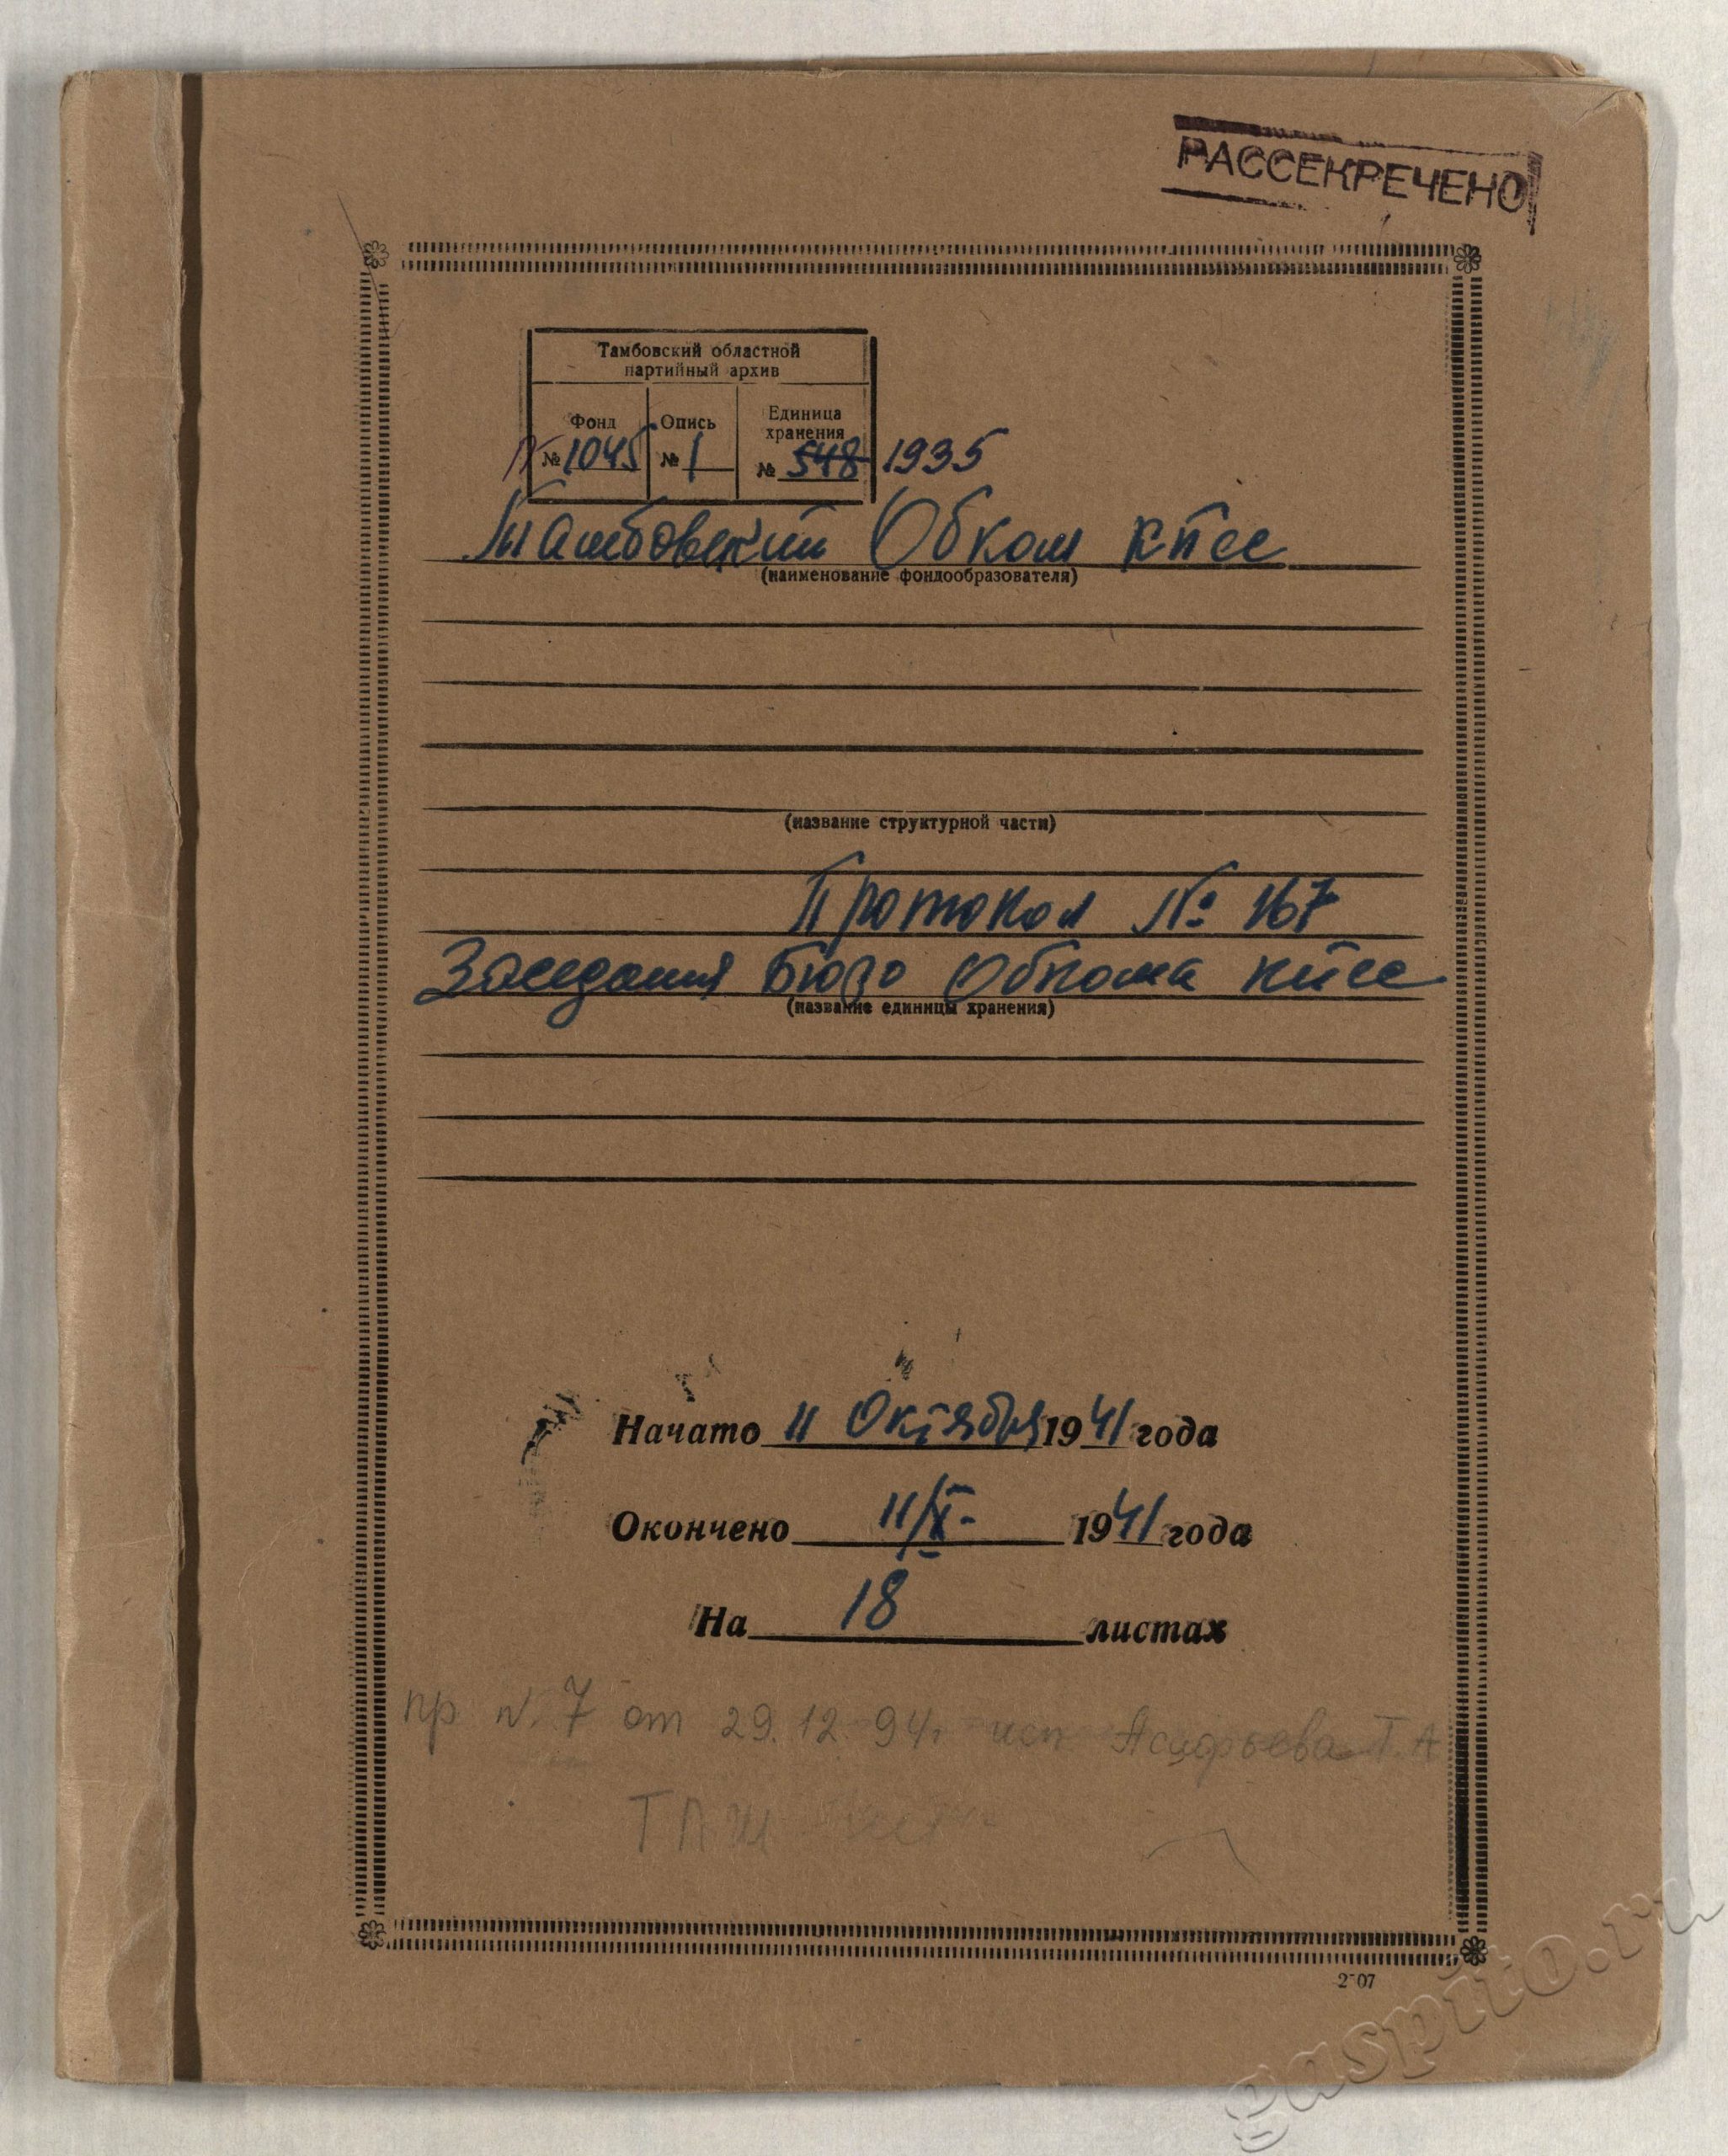 РАССЕКРЕЧЕНО
Тамбовский областной
партийный архив
Фонд Опись Единица
хранения
П № 1045 № 1 № 548 1935
Тамбовский Обком КПСС
(наименование фондообразователя)
(название структурной части)
Протокол № 167
Заседания Бюро Обкома КПСС
(название единицы хранения)
Начато 11 Октября 1941 года
Окончено 11/X- 1941 года
На 18 листах
пр N. 7 от 29.12.94г исп Асафьева Т.А
2507
gaspito.ru